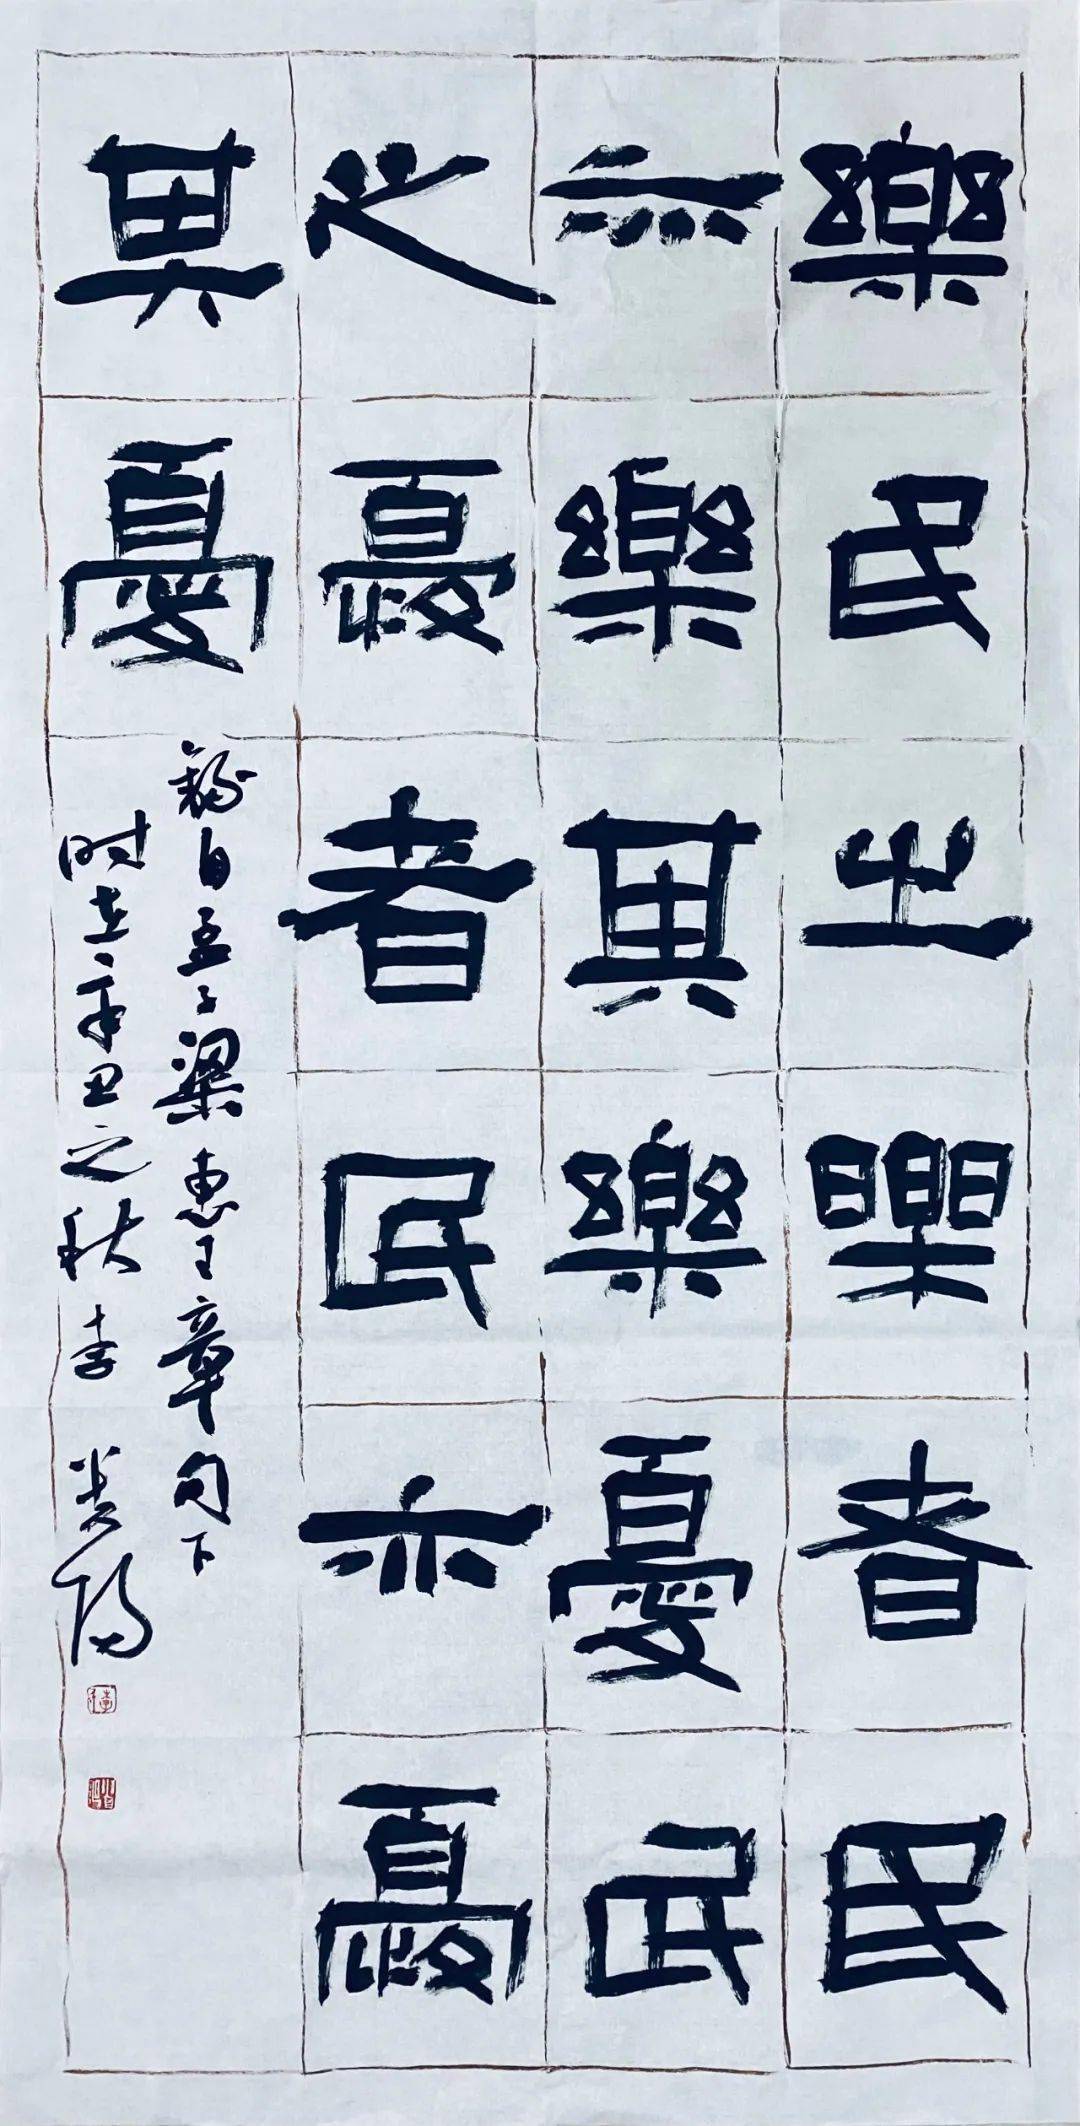 樂民之樂者民
亦樂其樂憂民
之憂者民亦憂
其憂
録自孟子梁惠王章句下
时在辛丑之秋李